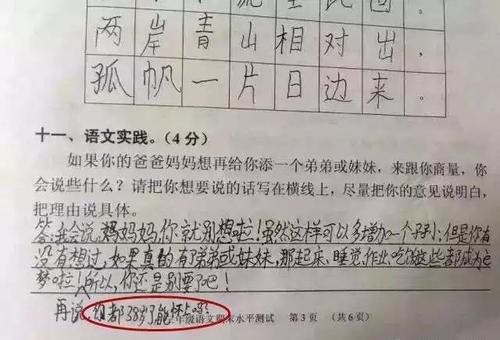 两岸青山相对出，
孤帆一片日边来。
十一、语文实践。（4分）
如果你的爸爸妈妈想再给你添一个弟弟或妹妹，来跟你商量，你
会说些什么？请把你想要说的话写在横线上，尽量把你的意见说明白，
把理由说具体。
答：我会说：妈妈妈，你就别想啦！虽然这样可以多增加一个孩子，但是你有
没有想过，如果真的有了弟弟或妹妹，那起床、睡觉、作业、吃饭这些都成为
梦啦！所以，你还是别要了吧！
再说，你都38岁了能怀上吗？
年级语文期末水平测试 第3页 （共6页）